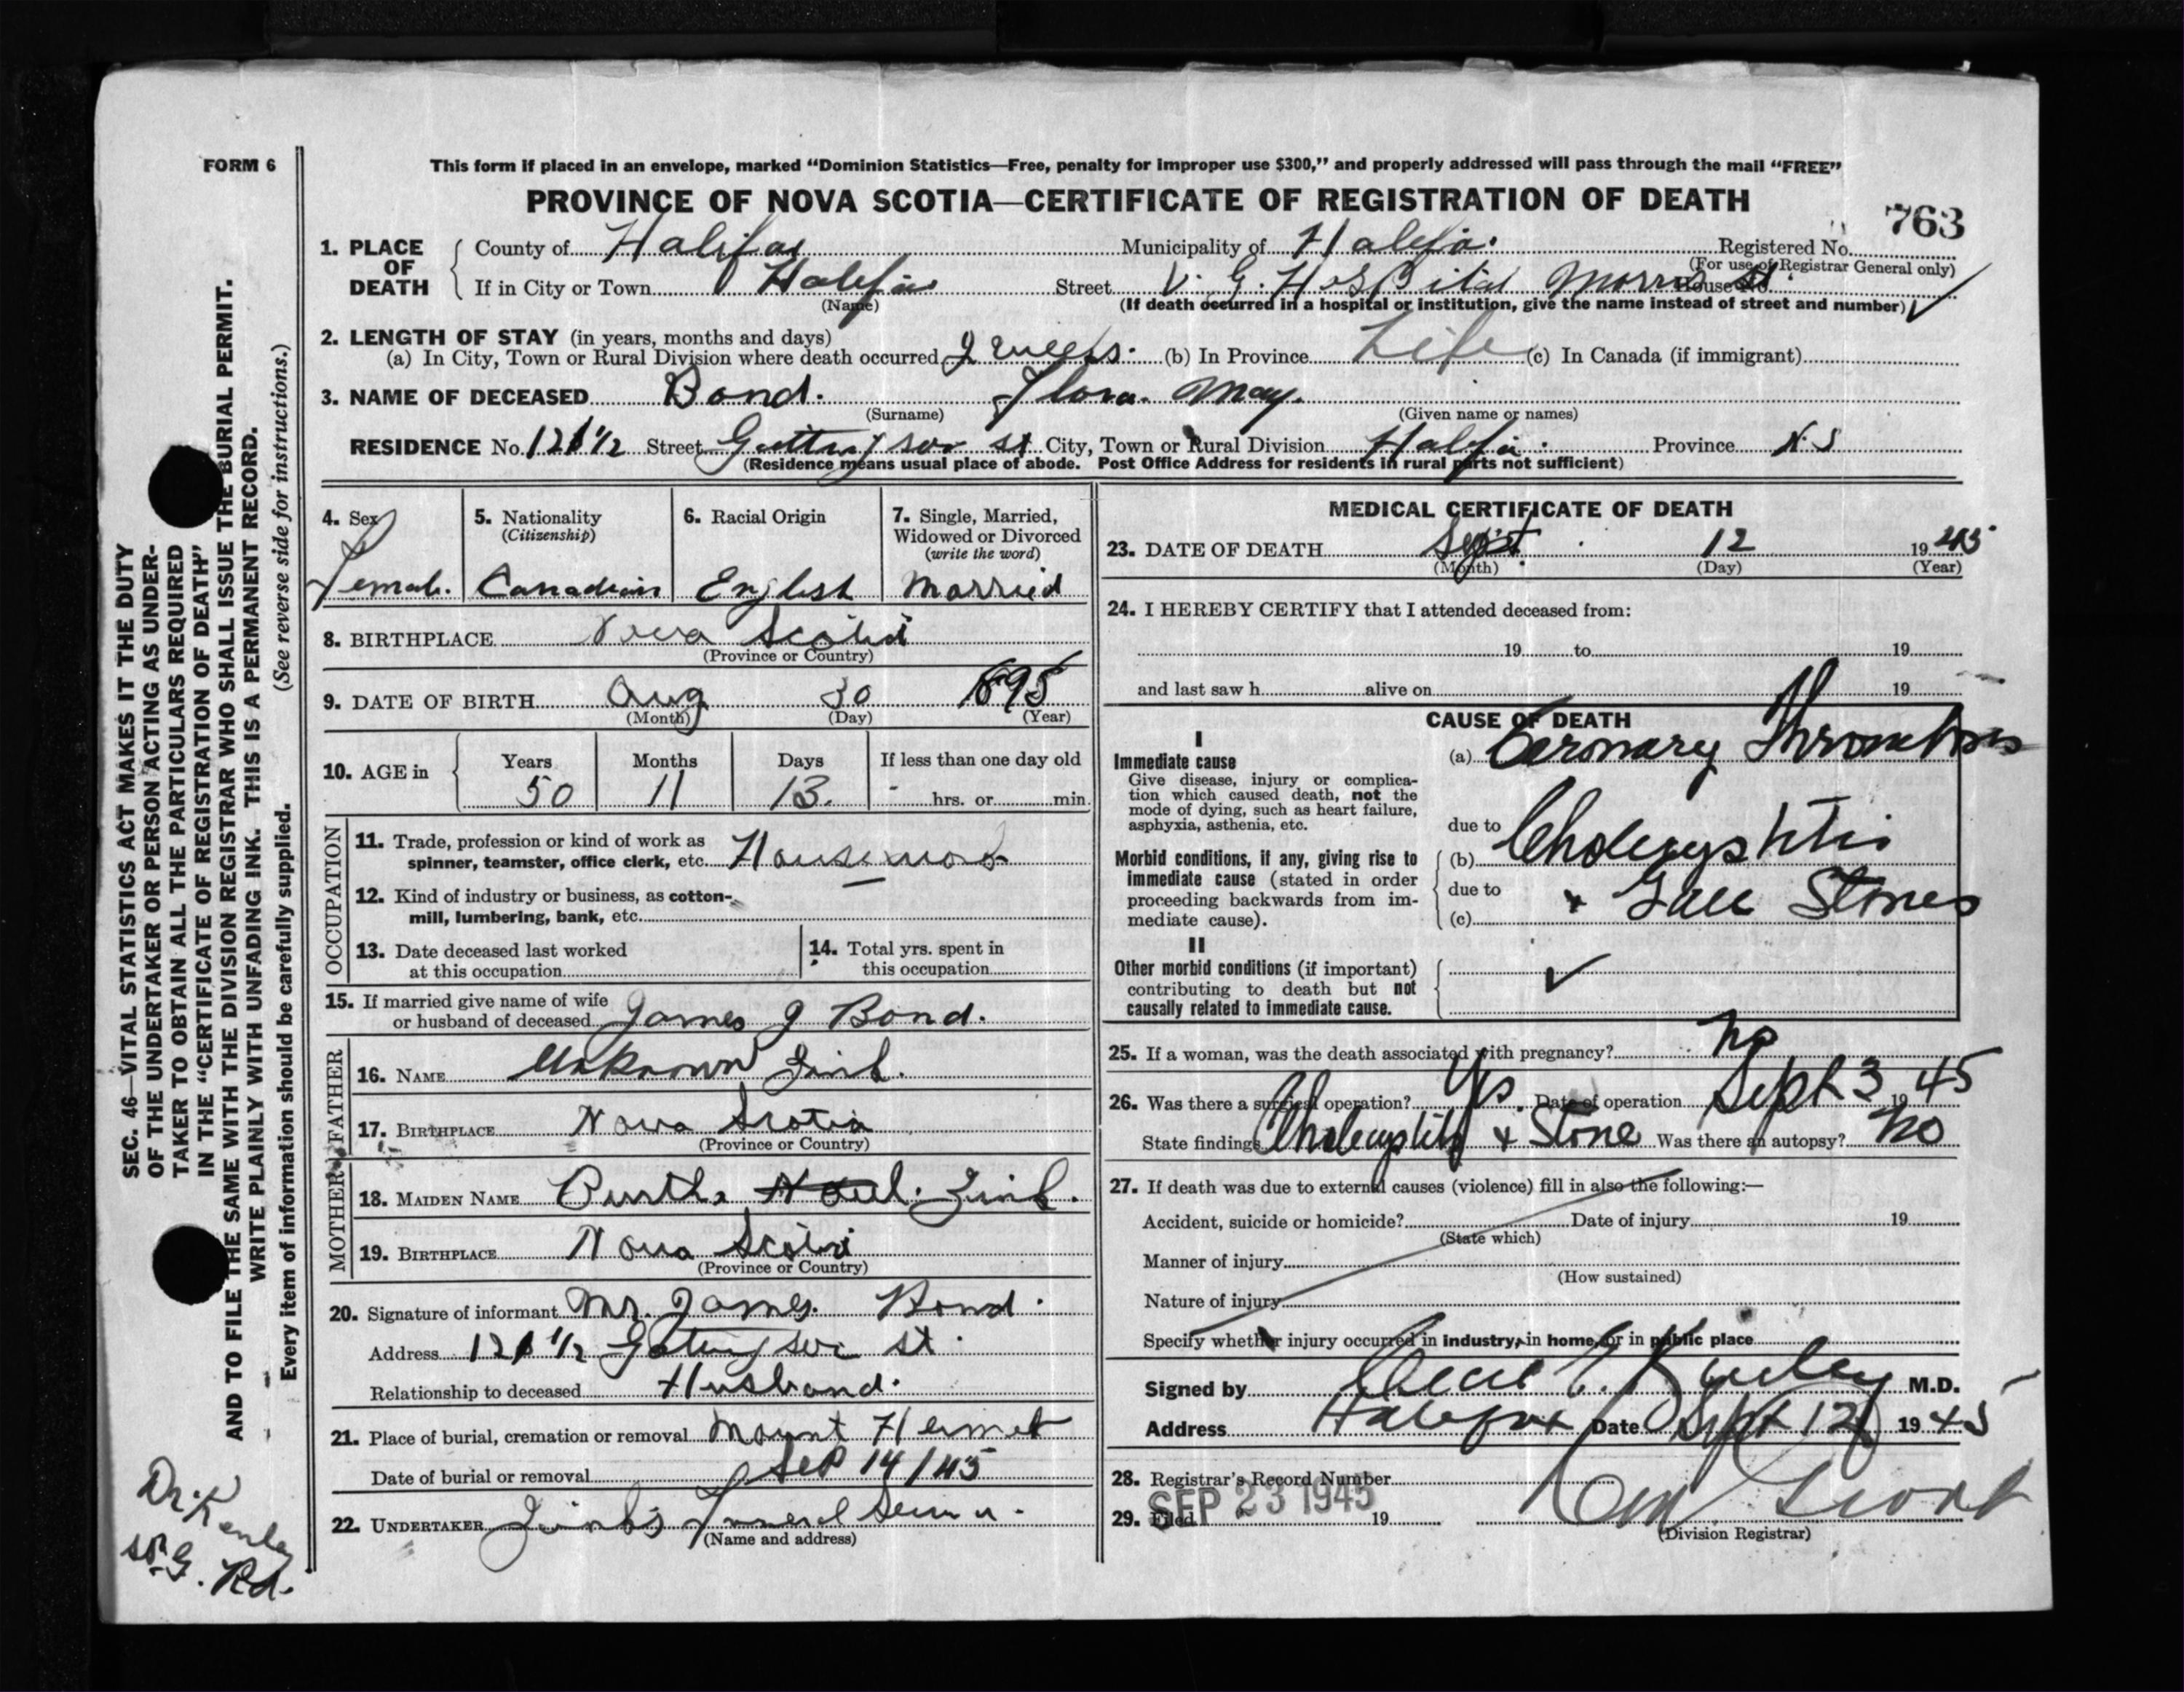 FORM 6
This form if placed in an envelope, marked “Dominion Statistics—Free, penalty for improper use $300,” and properly addressed will pass through the mail “FREE”
PROVINCE OF NOVA SCOTIA—CERTIFICATE OF REGISTRATION OF DEATH
763
1. PLACE OF DEATH
County of Halifax Municipality of Halifax Registered No.
(For use of Registrar General only)
If in City or Town Halifax Street V. G. Hospital Morris St. House No.
(Name) (If death occurred in a hospital or institution, give the name instead of street and number)
2. LENGTH OF STAY (in years, months and days)
(a) In City, Town or Rural Division where death occurred 2 weeks. (b) In Province Life (c) In Canada (if immigrant)
3. NAME OF DECEASED Bond. Flora May.
(Surname) (Given name or names)
RESIDENCE No. 121½ Street Gottingson St City, Town or Rural Division Halifax Province N.S
(Residence means usual place of abode. Post Office Address for residents in rural parts not sufficient)
4. Sex Female.
5. Nationality (Citizenship) Canadian
6. Racial Origin English
7. Single, Married, Widowed or Divorced (write the word) Married
8. BIRTHPLACE Nova Scotia
(Province or Country)
9. DATE OF BIRTH Aug 30 1895
(Month) (Day) (Year)
10. AGE in Years Months Days If less than one day old
50 11 13. - hrs. or min.
OCCUPATION
11. Trade, profession or kind of work as
spinner, teamster, office clerk, etc. Housework
12. Kind of industry or business, as cotton-
mill, lumbering, bank, etc.
13. Date deceased last worked
at this occupation
14. Total yrs. spent in
this occupation
15. If married give name of wife
or husband of deceased James J Bond.
FATHER
16. NAME Unknown Zink.
17. BIRTHPLACE Nova Scotia
(Province or Country)
MOTHER
18. MAIDEN NAME Zink.
19. BIRTHPLACE Nova Scotia
(Province or Country)
20. Signature of informant Mr. James Bond.
Address 121½ Gottingson St.
Relationship to deceased Husband.
21. Place of burial, cremation or removal Mount Hermet
Date of burial or removal Sep 14/45
22. UNDERTAKER Zink's Funeral
(Name and address)
MEDICAL CERTIFICATE OF DEATH
23. DATE OF DEATH Sept. 12 1945
(Month) (Day) (Year)
24. I HEREBY CERTIFY that I attended deceased from:
19 to 19
and last saw h alive on 19
CAUSE OF DEATH
I
Immediate cause
Give disease, injury or complica-
tion which caused death, not the
mode of dying, such as heart failure,
asphyxia, asthenia, etc.
(a) Coronary Thrombosis
due to
Morbid conditions, if any, giving rise to
immediate cause (stated in order
proceeding backwards from im-
mediate cause).
(b) Cholecystitis
due to
(c) + Gall Stones
II
Other morbid conditions (if important)
contributing to death but not
causally related to immediate cause.
25. If a woman, was the death associated with pregnancy? No
26. Was there a surgical operation? Yes. Date of operation Sept 3 1945
State findings Cholecystitis + Stone Was there an autopsy? No
27. If death was due to external causes (violence) fill in also the following:—
Accident, suicide or homicide? Date of injury 19
(State which)
Manner of injury
(How sustained)
Nature of injury
Specify whether injury occurred in industry, in home, or in public place
Signed by M.D.
Address Halifax Date Sept 12 1945
28. Registrar's Record Number
29. Filed SEP 23 1945 19
(Division Registrar)
SEC. 46—VITAL STATISTICS ACT MAKES IT THE DUTY
OF THE UNDERTAKER OR PERSON ACTING AS UNDER-
TAKER TO OBTAIN ALL THE PARTICULARS REQUIRED
IN THE “CERTIFICATE OF REGISTRATION OF DEATH”
AND TO FILE THE SAME WITH THE DIVISION REGISTRAR WHO SHALL ISSUE THE BURIAL PERMIT.
WRITE PLAINLY WITH UNFADING INK. THIS IS A PERMANENT RECORD.
Every item of information should be carefully supplied. (See reverse side for instructions.)
Rd.